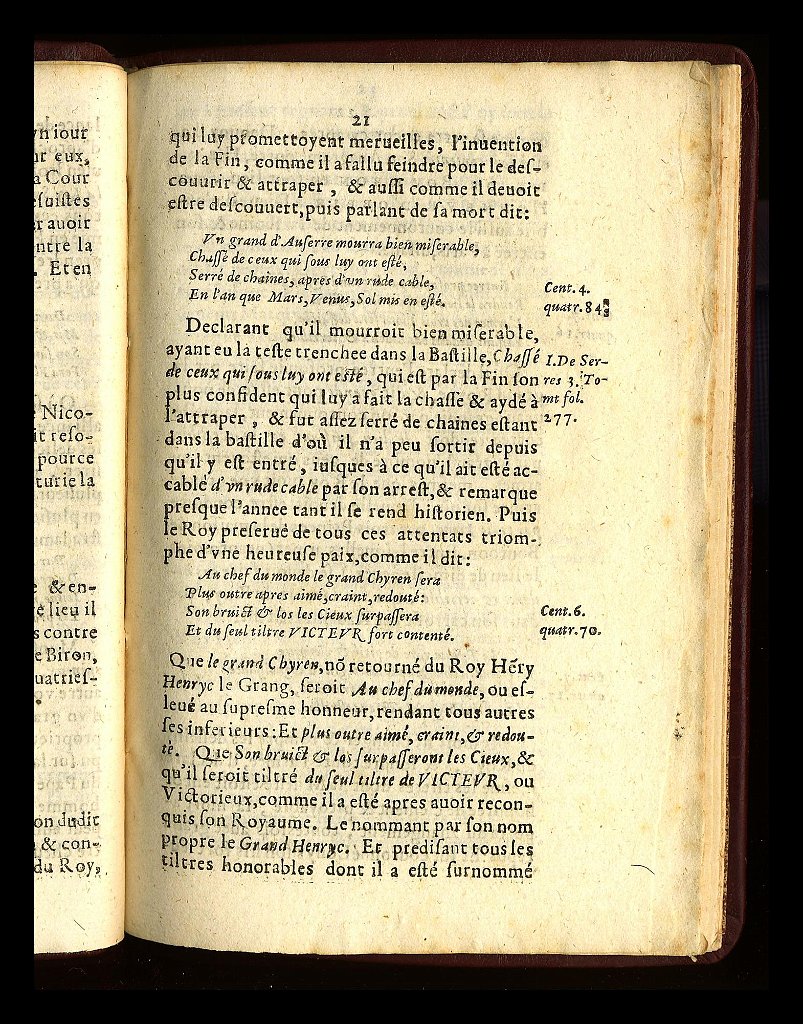 21
qui luy promettoyent merueilles, l'inuention
de la Fin, comme il a fallu feindre pour le deſ-
couurir & attraper, & auſſi comme il deuoit
eſtre deſcouuert, puis parlant de ſa mort dit:
Vn grand d'Auſerre mourra bien miſerable,
Chaſſé de ceux qui ſous luy ont eſté,
Serré de chaines, apres d'vn rude cable,
En l'an que Mars, Venus, Sol mis en eſté.
Cent. 4.
quatr. 84
Declarant qu'il mourroit bien miſerable,
ayant eu la teſte trenchee dans la Baſtille, Chaſſé
de ceux qui ſous luy ont eſté, qui eſt par la Fin ſon
plus confident qui luy a fait la chaſſe & aydé à
l'attraper, & fut aſſez ſerré de chaines eſtant
dans la baſtille d'où il n'a peu ſortir depuis
qu'il y eſt entré, iuſques à ce qu'il ait eſté ac-
cablé d'vn rude cable par ſon arreſt, & remarque
preſque l'annee tant il ſe rend hiſtorien. Puis
le Roy preſerué de tous ces attentats triom-
phe d'vne heureuſe paix, comme il dit:
I. De Ser-
res 3. To-
mt fol.
277.
Au chef du monde le grand Chyren ſera
Plus outre apres aimé, craint, redouté:
Son bruict & los les Cieux ſurpaſſera
Et du ſeul tiltre VICTEVR fort contenté.
Cent. 6.
quatr. 70.
Que le grand Chyren, nõ retourné du Roy Hẽry
Henryc le Grang, ſeroit Au chef du monde, ou eſ-
leué au ſupreſme honneur, rendant tous autres
ſes inferieurs: Et plus outre aimé, craint, & redou-
té. Que Son bruict & los ſurpaſſeront les Cieux, &
qu'il ſeroit tiltré du ſeul tiltre de VICTEVR, ou
Victorieux, comme il a eſté apres auoir recon-
quis ſon Royaume. Le nommant par ſon nom
propre le Grand Henryc. Et prediſant tous les
tiltres honorables dont il a eſté ſurnommé
yn iour
eux,
a Cour
eſuiſtes
r auoir
ntre la
. Et en
Nico-
it reſo-
pource
turie la
& en-
e lieu il
s contre
e Biron,
uatrieſ-
on dudit
& con-
du Roy,